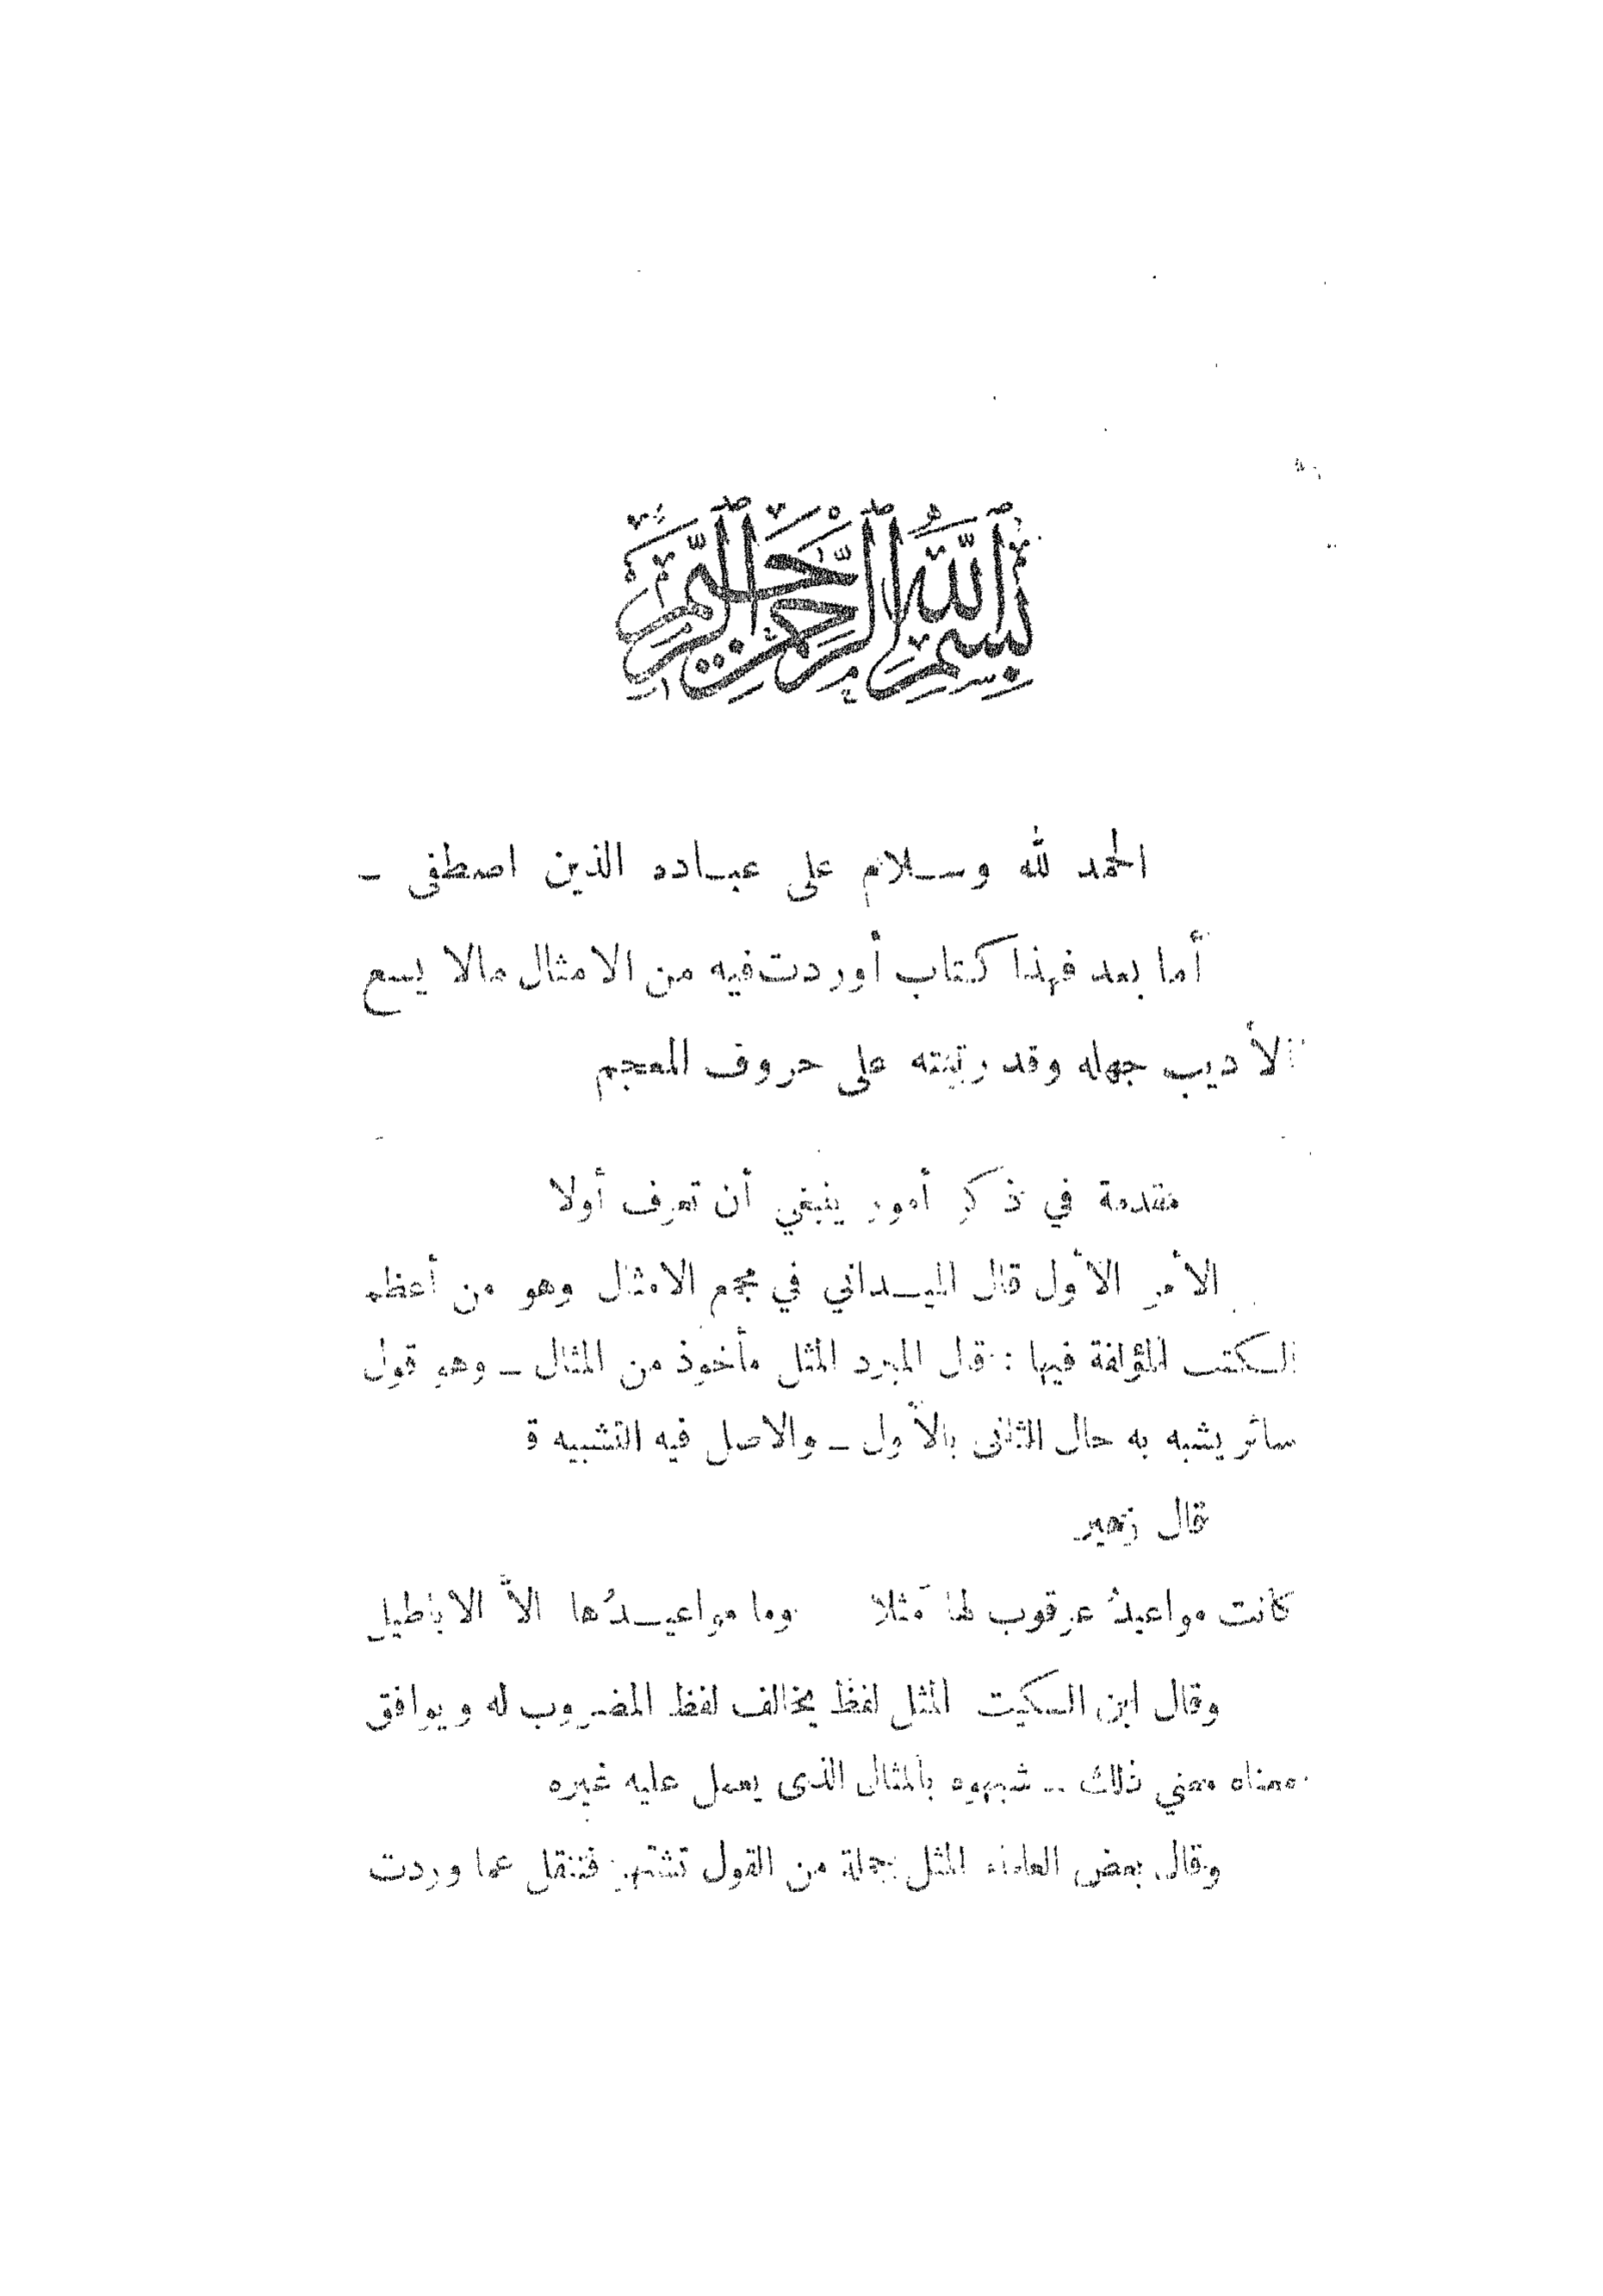 بسم الله الرحمن الرحيم
الحمد لله وسلام على عباده الذين اصطفى ـ
أما بعد فهذا كتاب أوردت فيه من الامثال مالا يسع
الأديب جهله وقد رتبته على حروف المعجم
مقدمة في ذكر أمور ينبغي أن تعرف أولا
الأمر الأول قال الميداني في مجمع الامثال وهو من أعظم
الكتب المؤلفة فيها : قال المبرد المثل مأخوذ من المثال ـ وهو قول
سائر يشبه به حال الثانى بالأول ـ والاصل فيه التشبيه ق
قال زهير
كانت مواعيدُ عرقوب لها مثلا وما مواعيدُها الاّ الاباطيل
وقال ابن السكيت المثل لفظ يخالف لفظ المضروب له ويوافق
معناه معني ذلك ـ شبهوه بالمثال الذى يعمل عليه غيره
وقال بعض العلماء المثل جملة من القول تشتهر فتنقل عما وردت